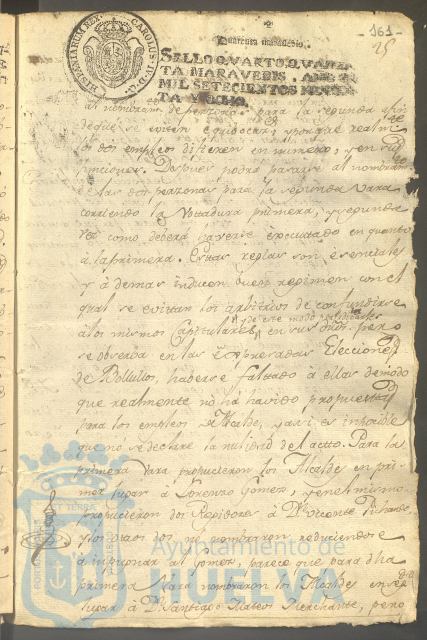 161
25
HISPANIARUM REX CAROLUS IV D.G.
Quarenta maravedis.
SELLO QVARTO, QVAREN
TA MARAVEDIS, AÑO DE
MIL SETECIENTOS NOVEN
TA Y OCHO.
al nombram.to de personas para la segunda, a fin
de q.e se eviten equibocaz.s, porque realm.te
los dos empleos difieren en numero, y en
funciones. Despues podrá pasarse al nombram.to
de las dos personas para la segunda Vara
corriendo la Votadura primera, y segunda
vez como deberá haverse executado en quanto
á la primera. Estas reglas son esenciales
y á demas inducen buen regimen con el
qual se evitan los arbitrios de confundirse
y de este modo
á los mismos Capitulares, en sus votos. pero
se observa en las expresadas Elecciones
de Bollullos, haberse faltado á ellas de modo
que realmente no ha havido propuesta
para los empleos de Alcalde, y asi es infalible
que no se declare la nulidad del acto. Para la
primera Vara propusieron los Alcaldes en pri
mer lugar á Lorenzo Gomez, y en el mismo
propusieron dos Regidores á D.n Vicente
y los otros dos no nombraron, reduciendose
á impugnar al Gomez, parece que para dha
primera Vara nombraron los Alcaldes en seg.do
lugar á D.n Santiago Mateos Merchante, pero
Ayuntamiento de
HUELVA